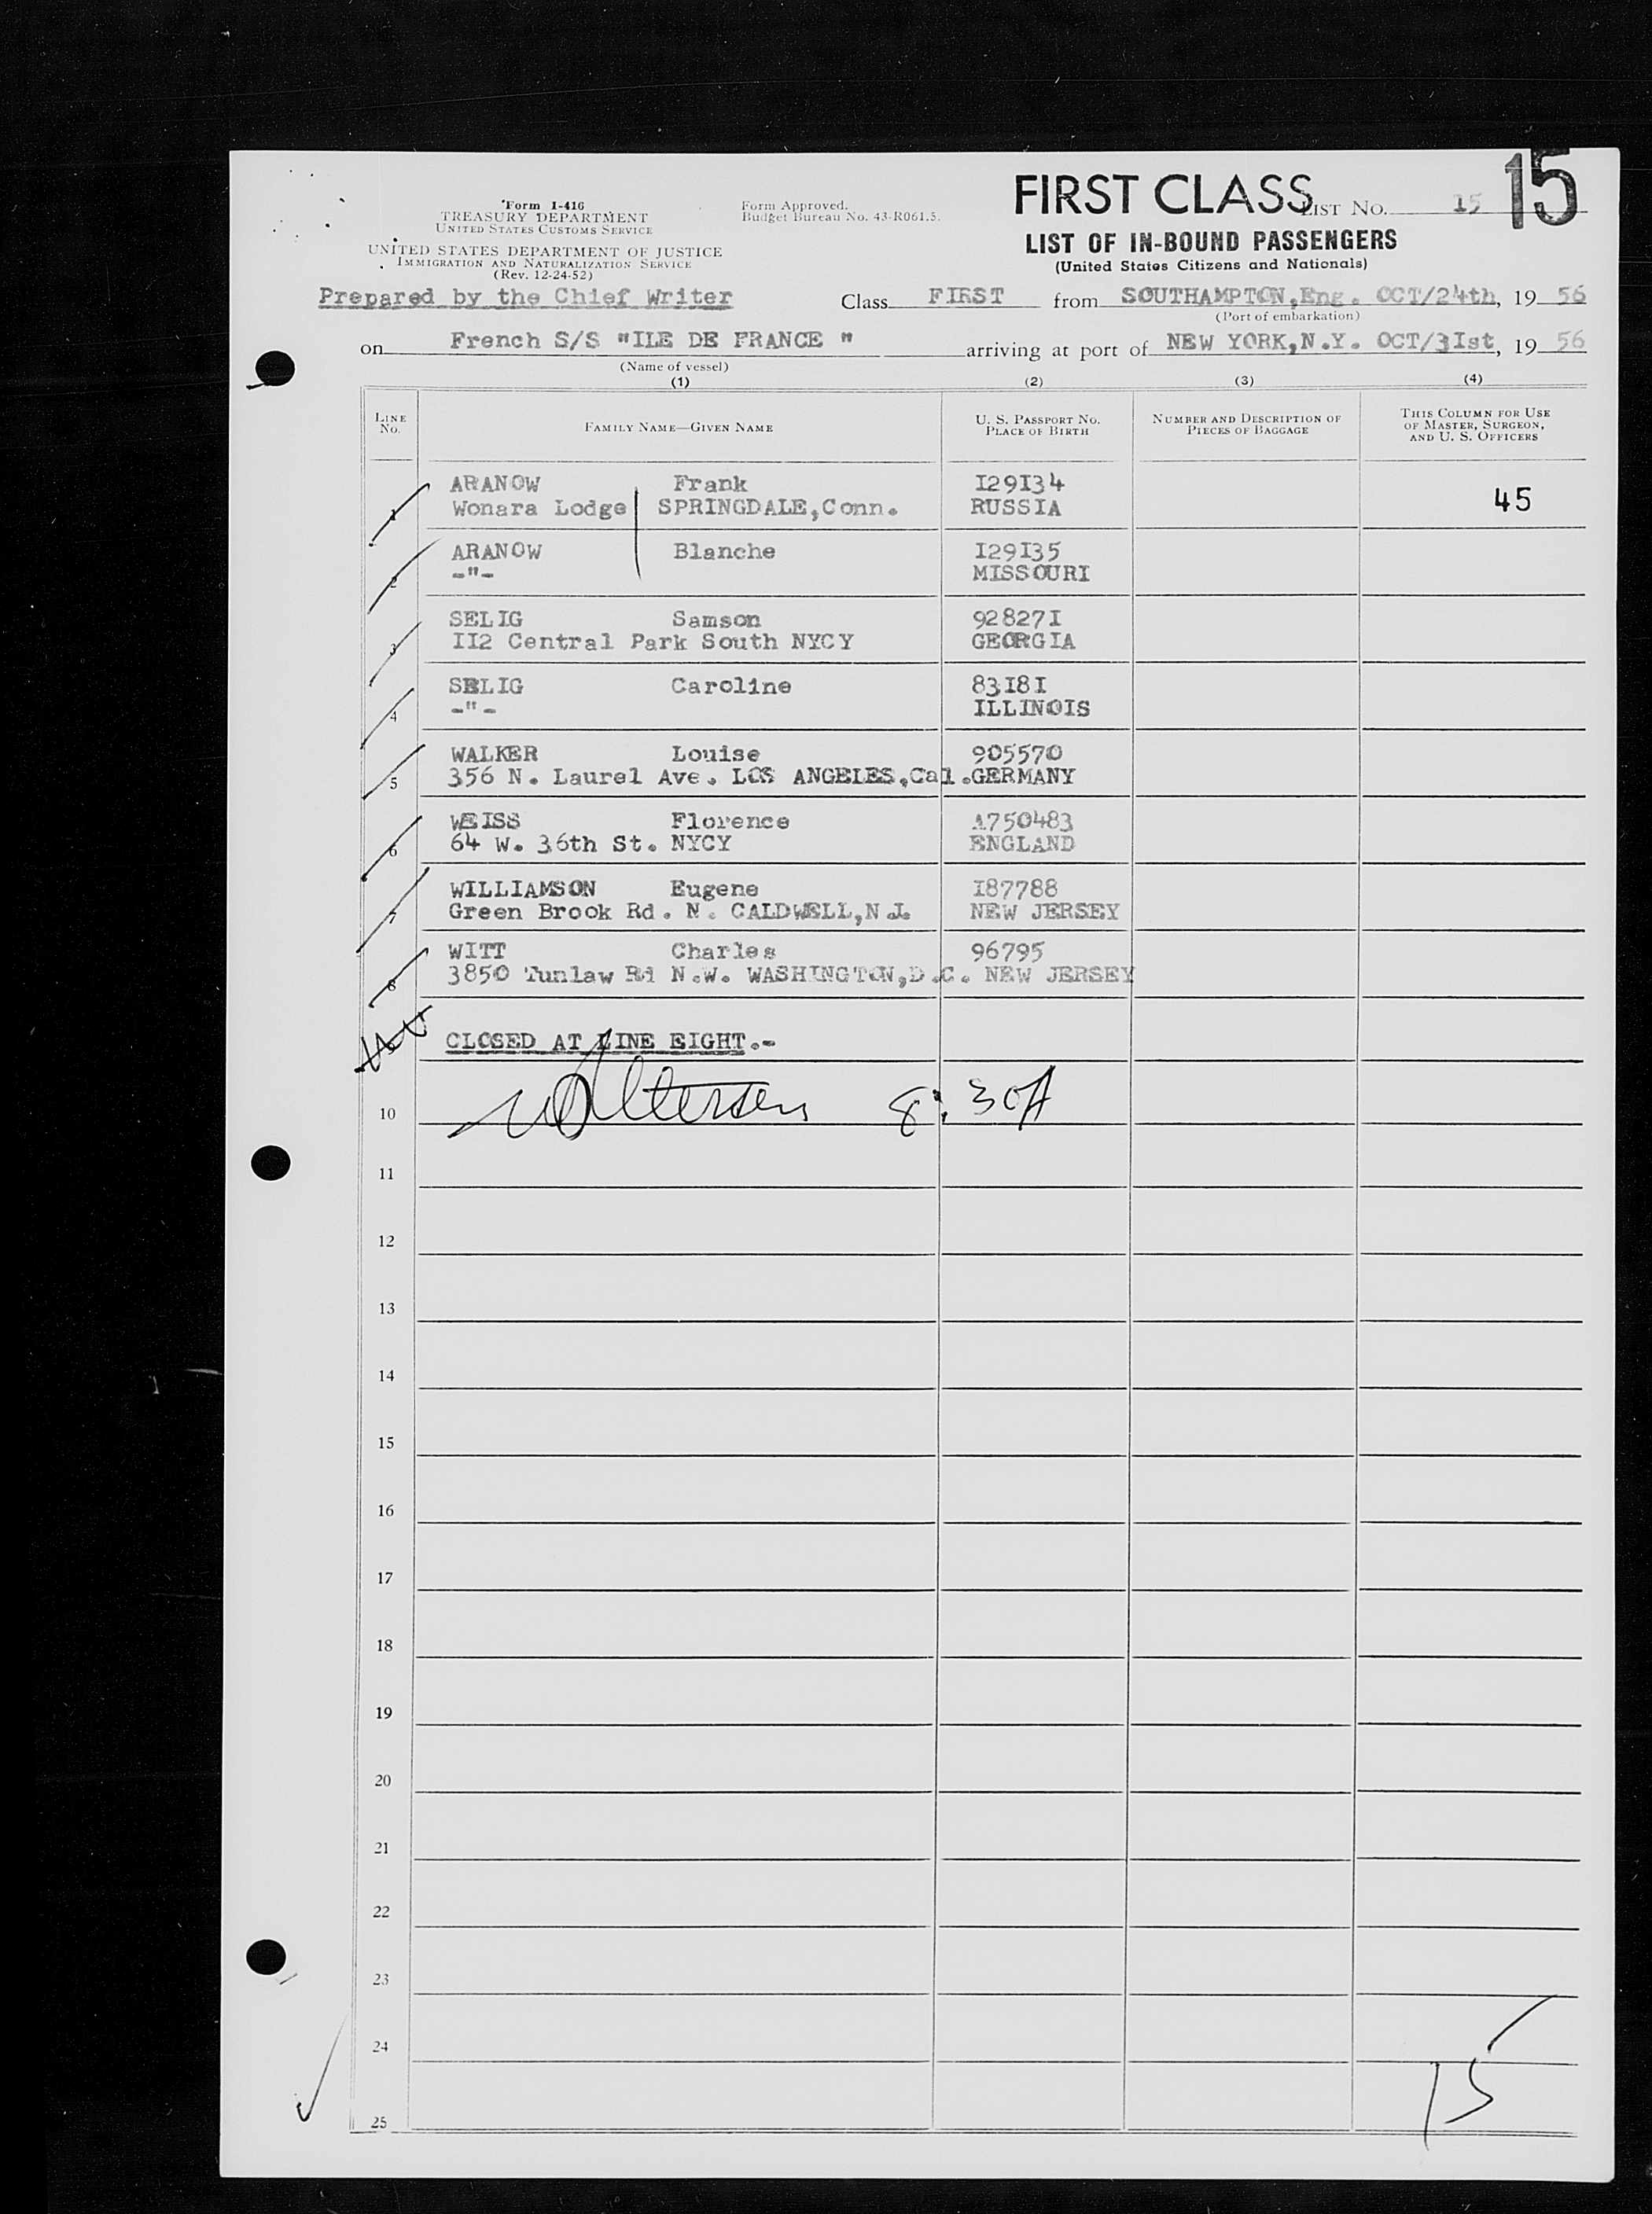 Form I-416
TREASURY DEPARTMENT
UNITED STATES CUSTOMS SERVICE
UNITED STATES DEPARTMENT OF JUSTICE
IMMIGRATION AND NATURALIZATION SERVICE
(Rev. 12-24-52)
Form Approved.
Budget Bureau No. 43-R061.5.
FIRST CLASS
LIST No. 15
15
LIST OF IN-BOUND PASSENGERS
(United States Citizens and Nationals)
Prepared by the Chief Writer
Class FIRST from SOUTHAMPTON,Eng. OCT/24th, 19 56
(Port of embarkation)
on French S/S "ILE DE FRANCE " arriving at port of NEW YORK,N.Y. OCT/3Ist, 19 56
(Name of vessel)
(1) (2) (3) (4)
LINE No. FAMILY NAME—GIVEN NAME U. S. PASSPORT No. PLACE OF BIRTH NUMBER AND DESCRIPTION OF PIECES OF BAGGAGE THIS COLUMN FOR USE OF MASTER, SURGEON, AND U. S. OFFICERS
ARANOW Frank I29I34
1 Wonara Lodge SPRINGDALE,Conn. RUSSIA 45
ARANOW Blanche I29I35
2 -"- MISSOURI
SELIG Samson 92827I
3 II2 Central Park South NYCY GEORGIA
SELIG Caroline 83I8I
4 -"- ILLINOIS
WALKER Louise 905570
5 356 N. Laurel Ave. LOS ANGELES,Cal. GERMANY
WEISS Florence A750483
6 64 W. 36th St. NYCY ENGLAND
WILLIAMSON Eugene I87788
7 Green Brook Rd. N. CALDWELL,N.J. NEW JERSEY
WITT Charles 96795
8 3850 Tunlaw Rd N.W. WASHINGTON,D.C. NEW JERSEY
CLOSED AT LINE EIGHT.-
10 8:30A
11
12
13
14
15
16
17
18
19
20
21
22
23
24
15
25